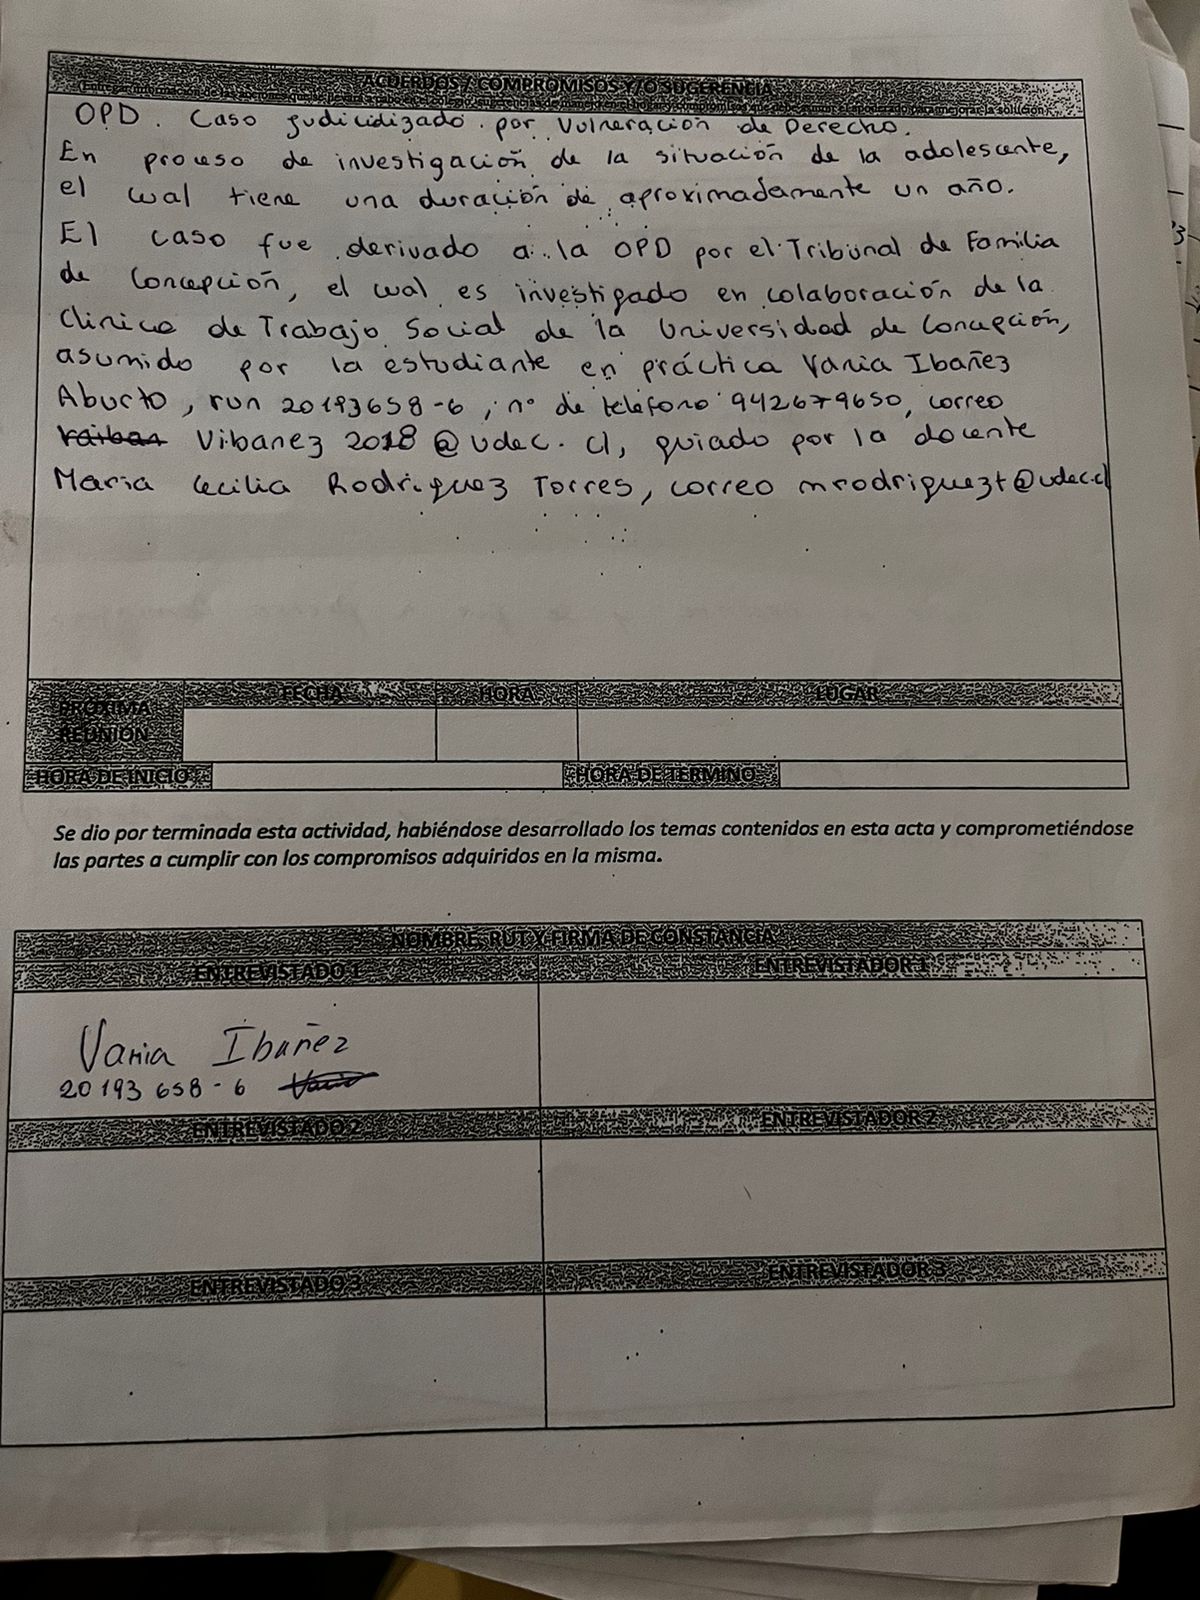 ACUERDOS / COMPROMISOS Y/O SUGERENCIA
OPD. Caso judicidizado por Vulneración de Derecho.
En proceso de investigación de la situación de la adolescente,
el cual tiene una duración de aproximadamente un año.
El caso fue derivado a la OPD por el Tribunal de Familia
de Concepción, el cual es investigado en colaboración de la
Clinica de Trabajo Social de la Universidad de Concepción,
asumido por la estudiante en práctica Vania Ibañez
Aburto, run 20193658-6, n° de teléfono 942679650, correo
Vibanez2018@udec.cl, guiado por la docente
Maria Cecilia Rodriguez Torres, correo mrodriguezt@udec.cl
PROXIMA REUNION FECHA HORA LUGAR
HORA DE INICIO HORA DE TERMINO
Se dio por terminada esta actividad, habiéndose desarrollado los temas contenidos en esta acta y comprometiéndose
las partes a cumplir con los compromisos adquiridos en la misma.
NOMBRE, RUT Y FIRMA DE CONSTANCIA
ENTREVISTADO 1 ENTREVISTADOR 1
Vania Ibañez
20193658-6
ENTREVISTADO 2 ENTREVISTADOR 2
ENTREVISTADO 3 ENTREVISTADOR 3